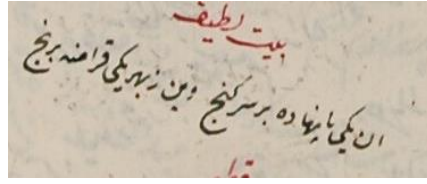 بیت لطیف
ان یکی پا نهاده بر سر کنج وین ز بهر یکی قراضه برنج